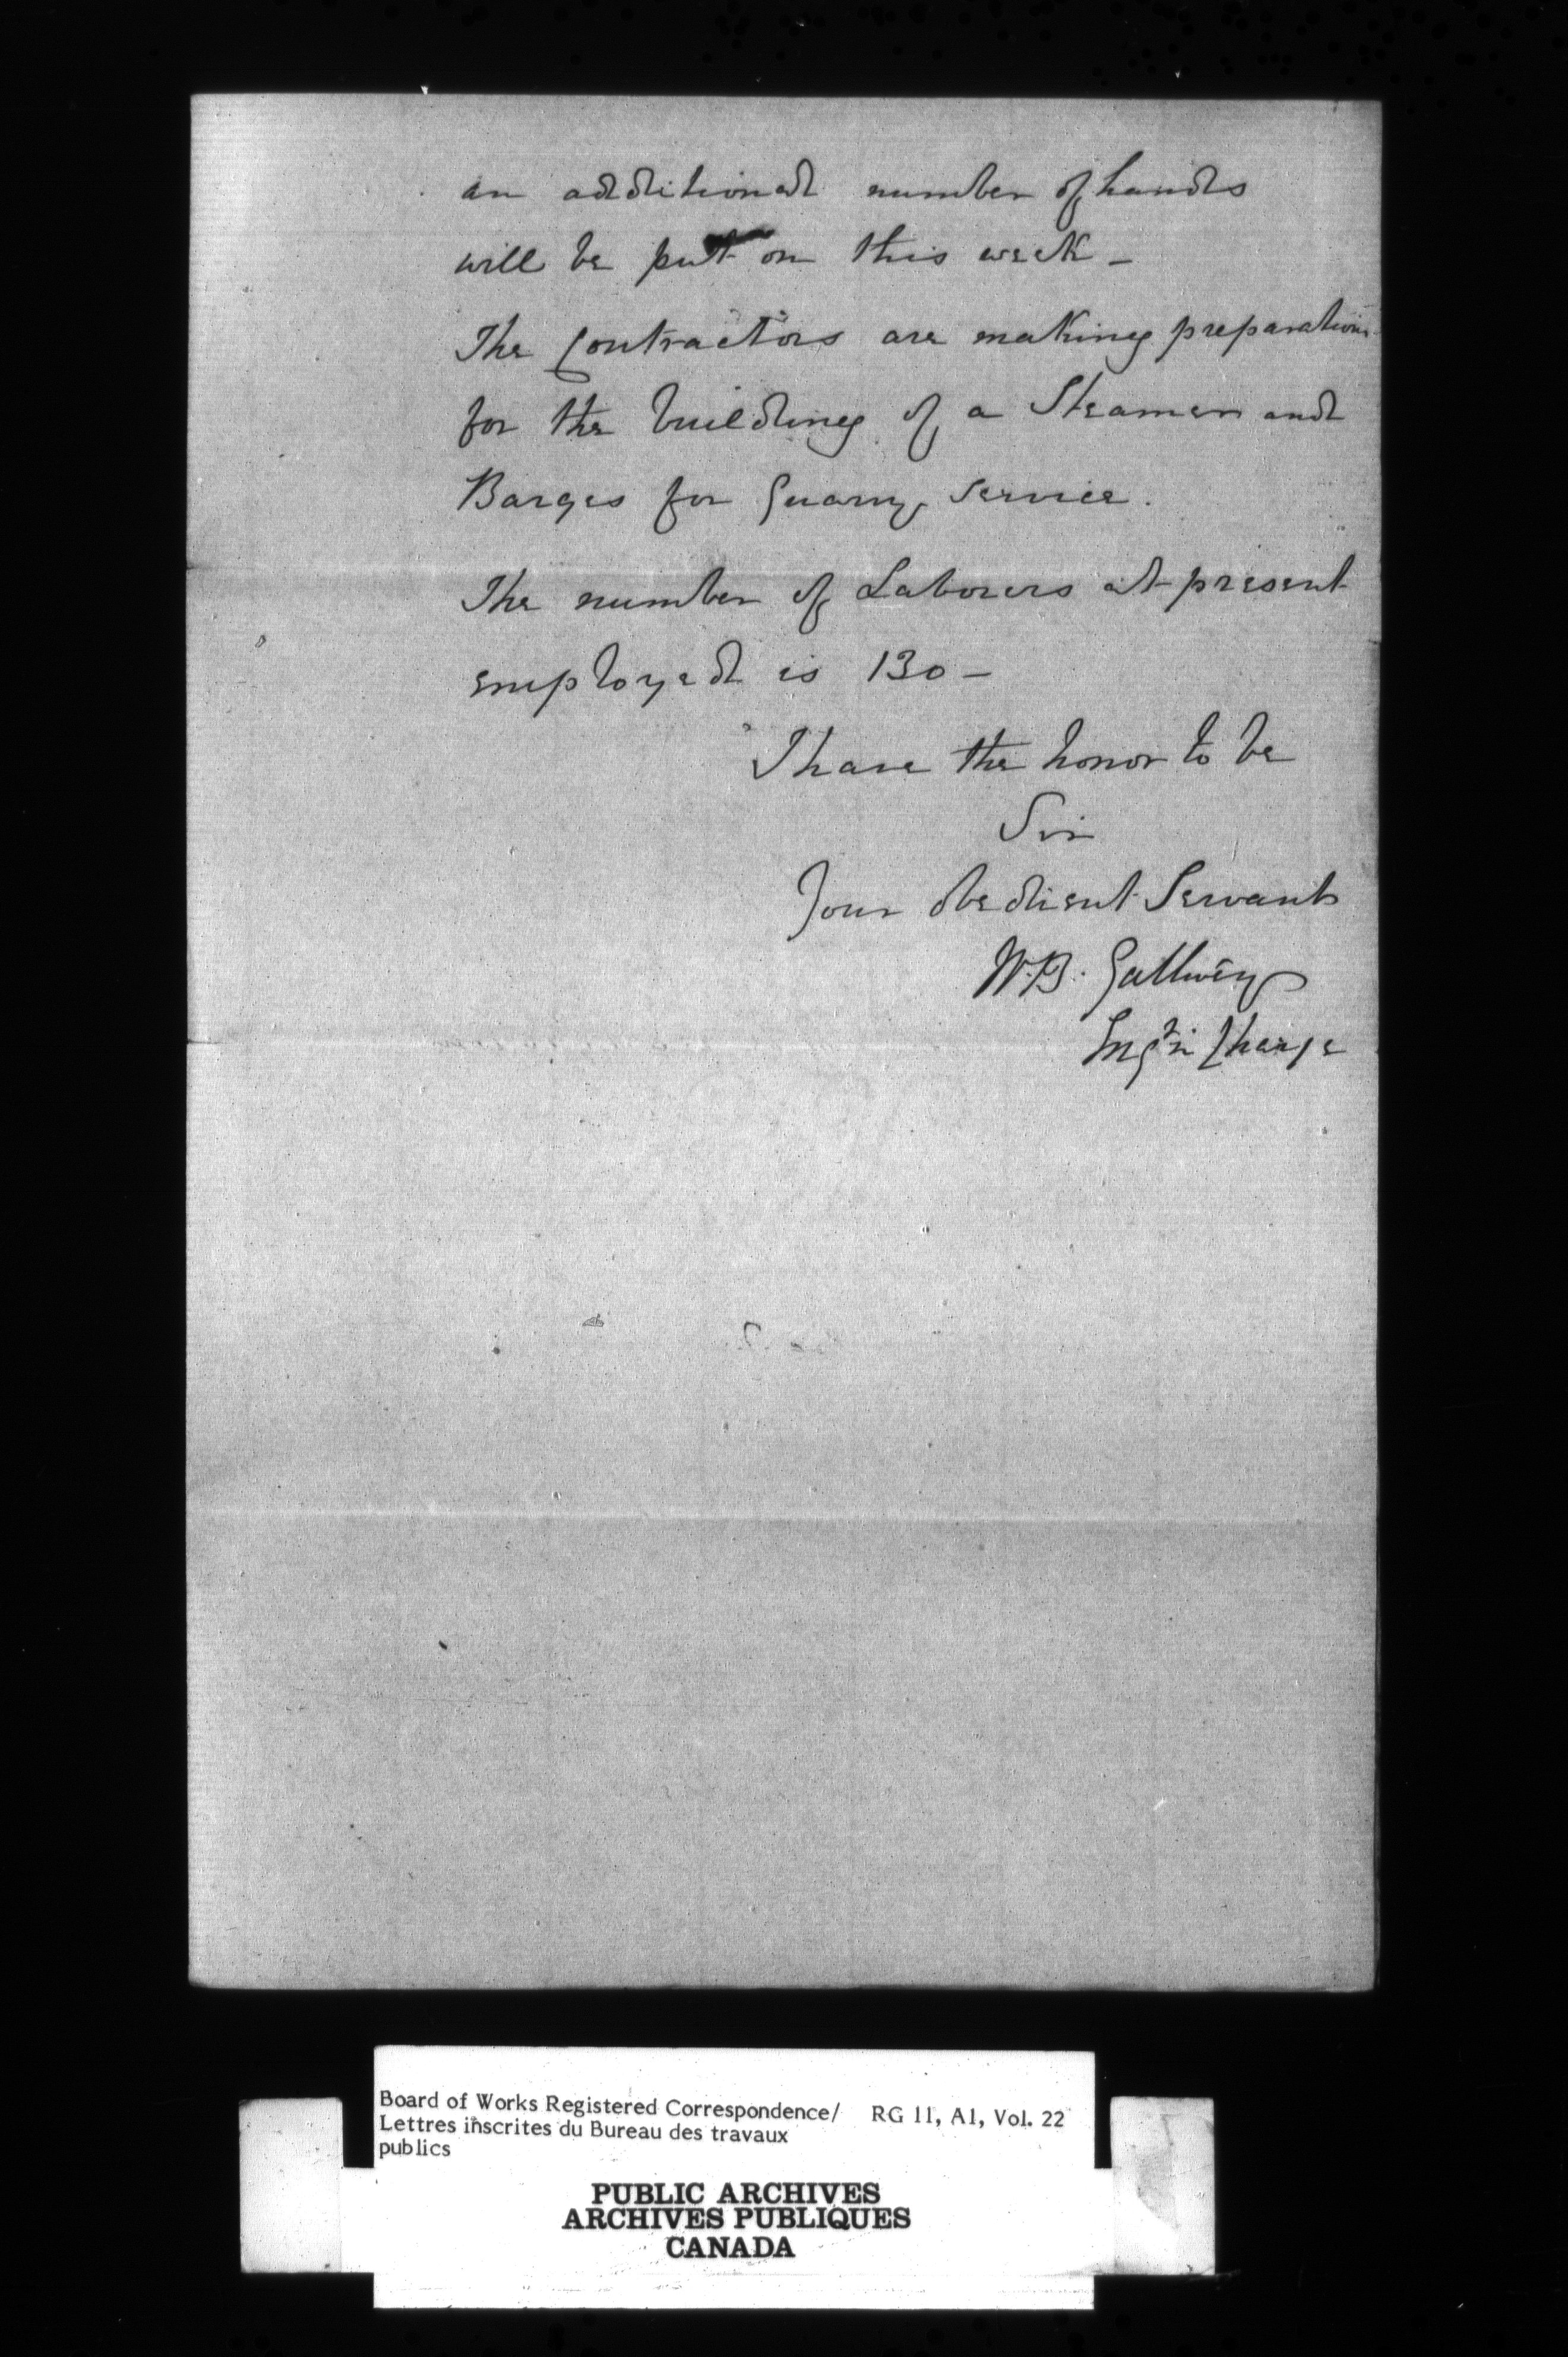 an additional number of hands
will be put on this week –
The Contractors are making preparations
for the building of a Steamer and
Barges for Quarry service.
The number of Laborers at present
employed is 130 –
I have the honor to be
Sir
Your obedient Servant
W.B. Gallwey
Eng.r in Charge
Board of Works Registered Correspondence/ RG 11, A1, Vol. 22
Lettres inscrites du Bureau des travaux
publics
PUBLIC ARCHIVES
ARCHIVES PUBLIQUES
CANADA